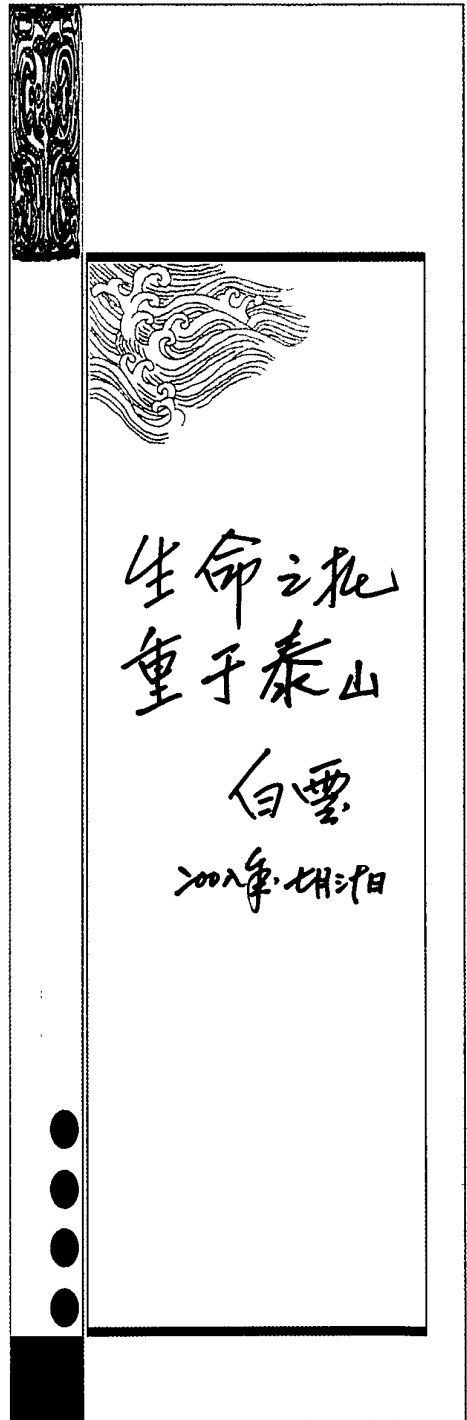 生命之托
重于泰山
白雲
二00八年.七月二十日